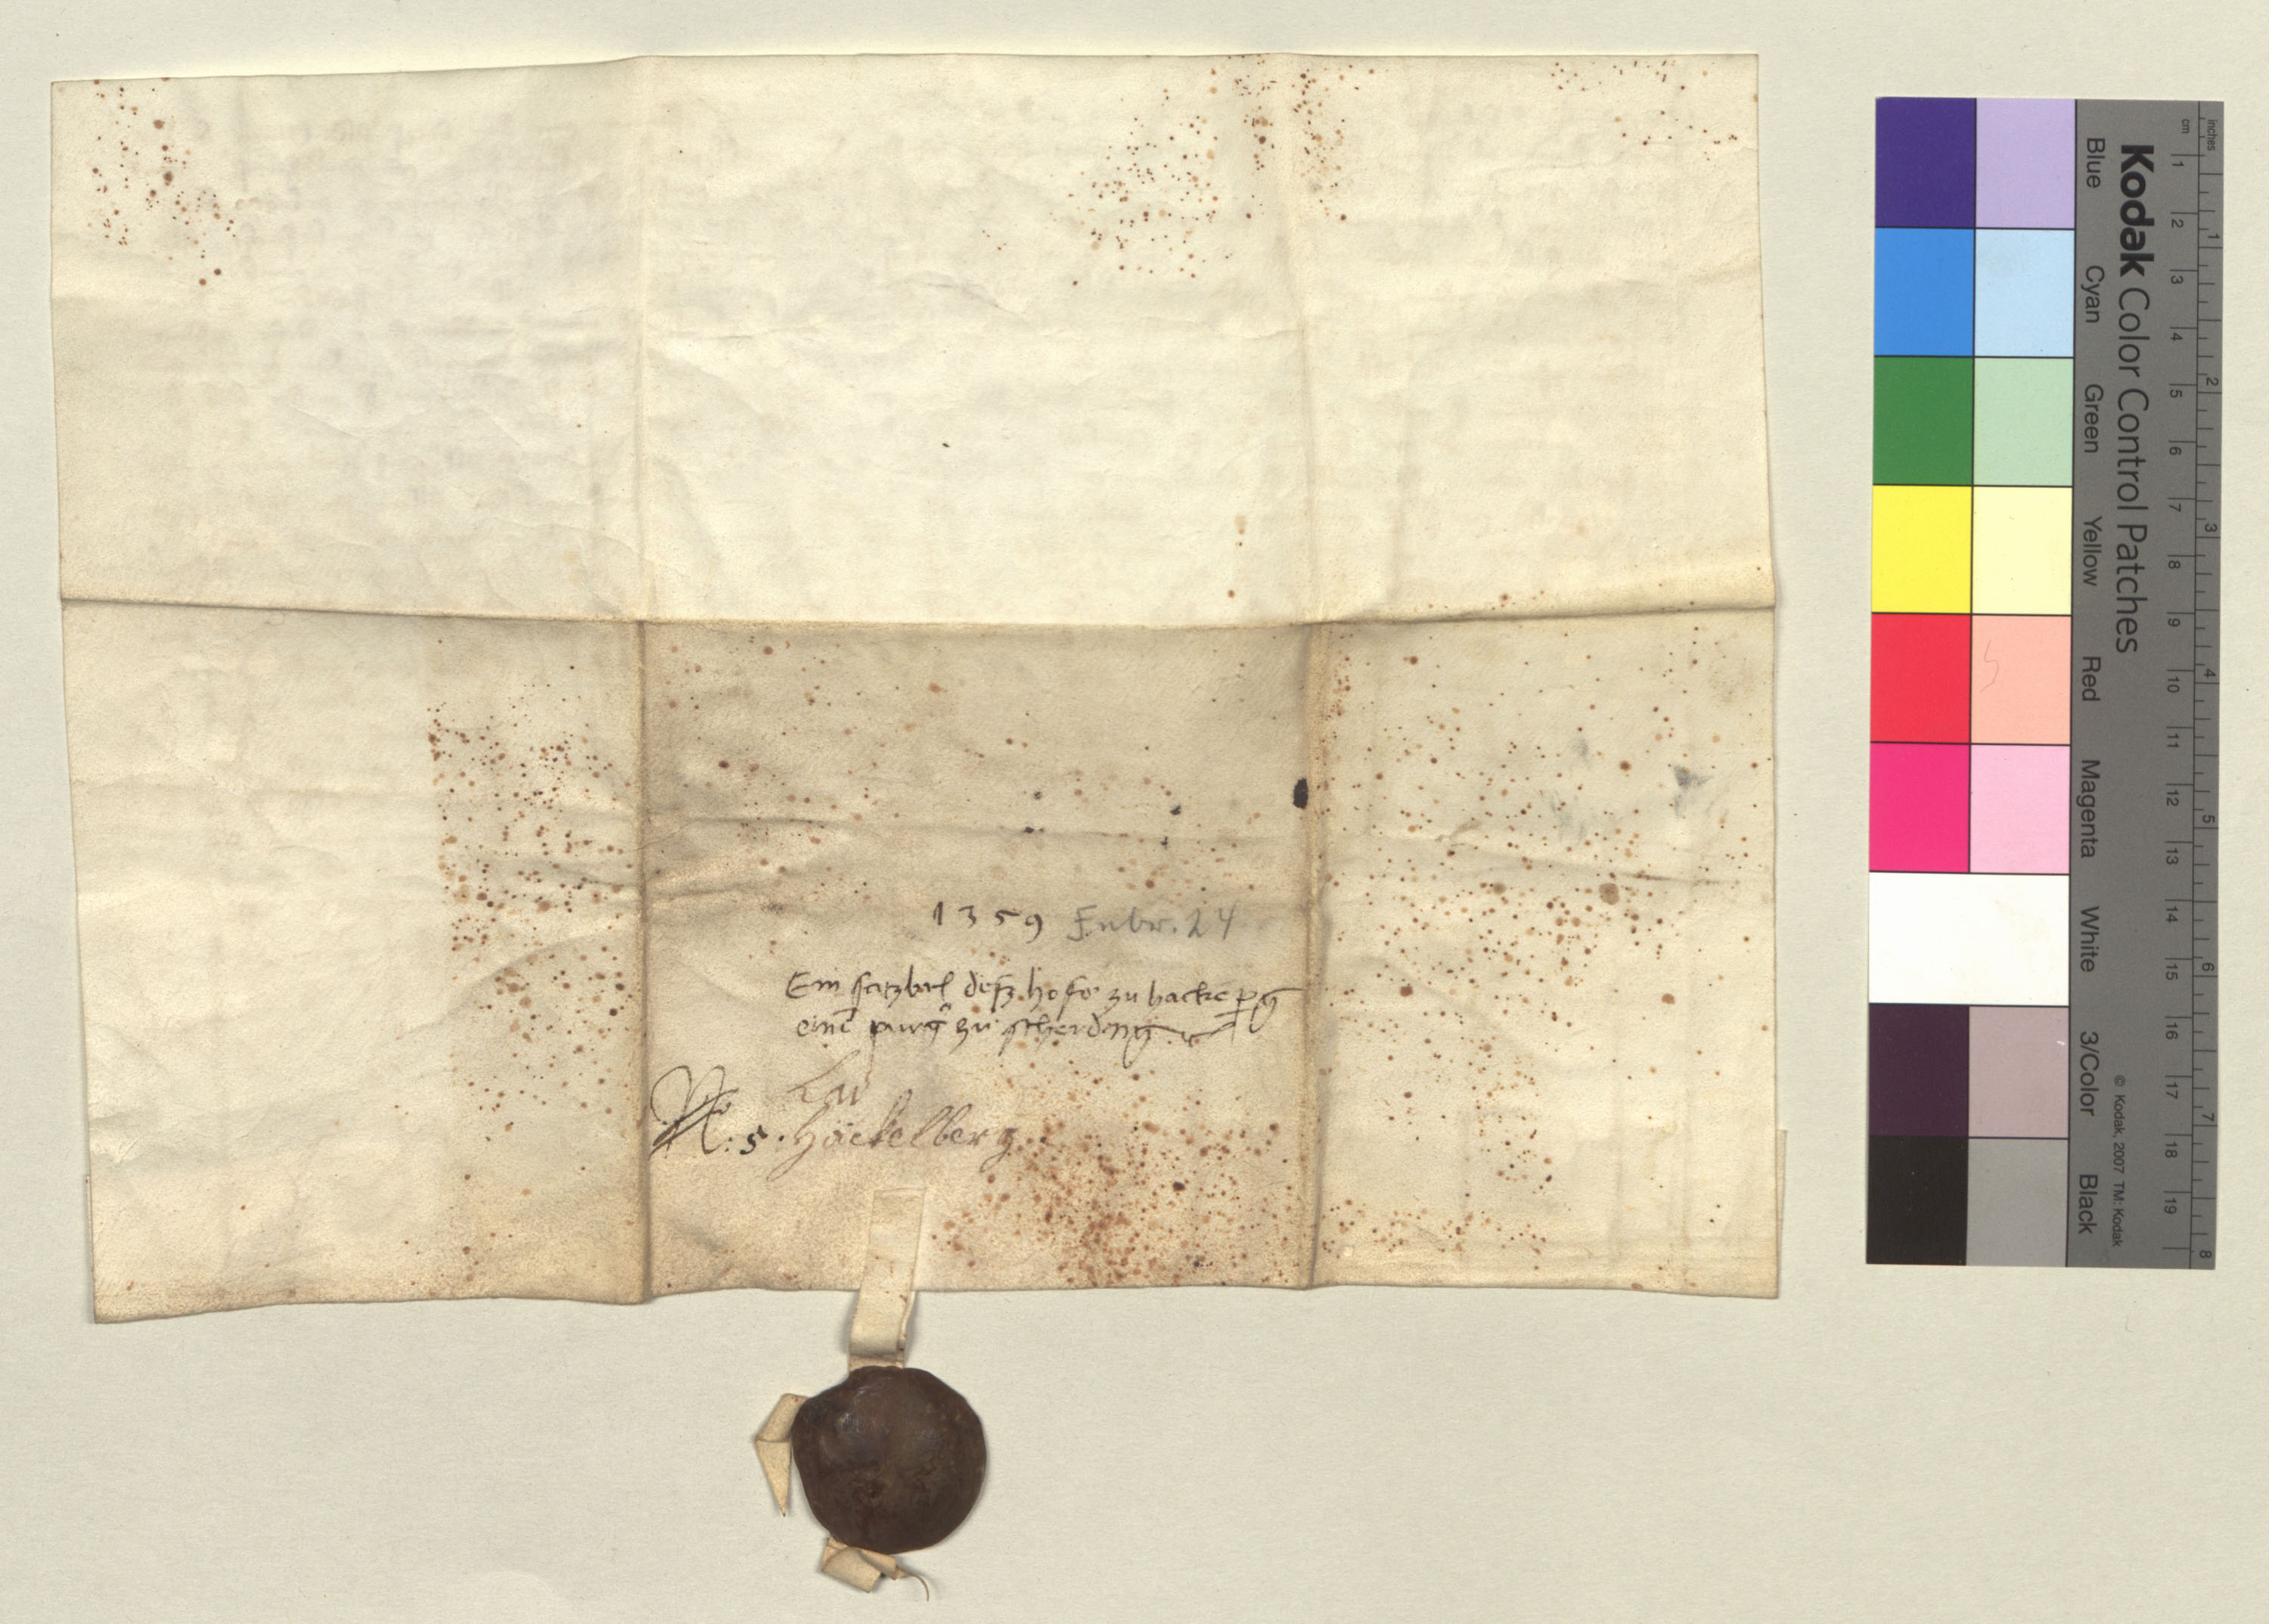 1359 Febr. 24
Ein satzbrief desz hofs zu hackepg
eine purg zu scherding
Lad
No: 5. Häckelberg
Kodak Color Control Patches
Blue Cyan Green Yellow Red Magenta White 3/Color Black
© Kodak, 2007 TM: Kodak
inches 1 2 3 4 5 6 7 8
cm 1 2 3 4 5 6 7 8 9 10 11 12 13 14 15 16 17 18 19